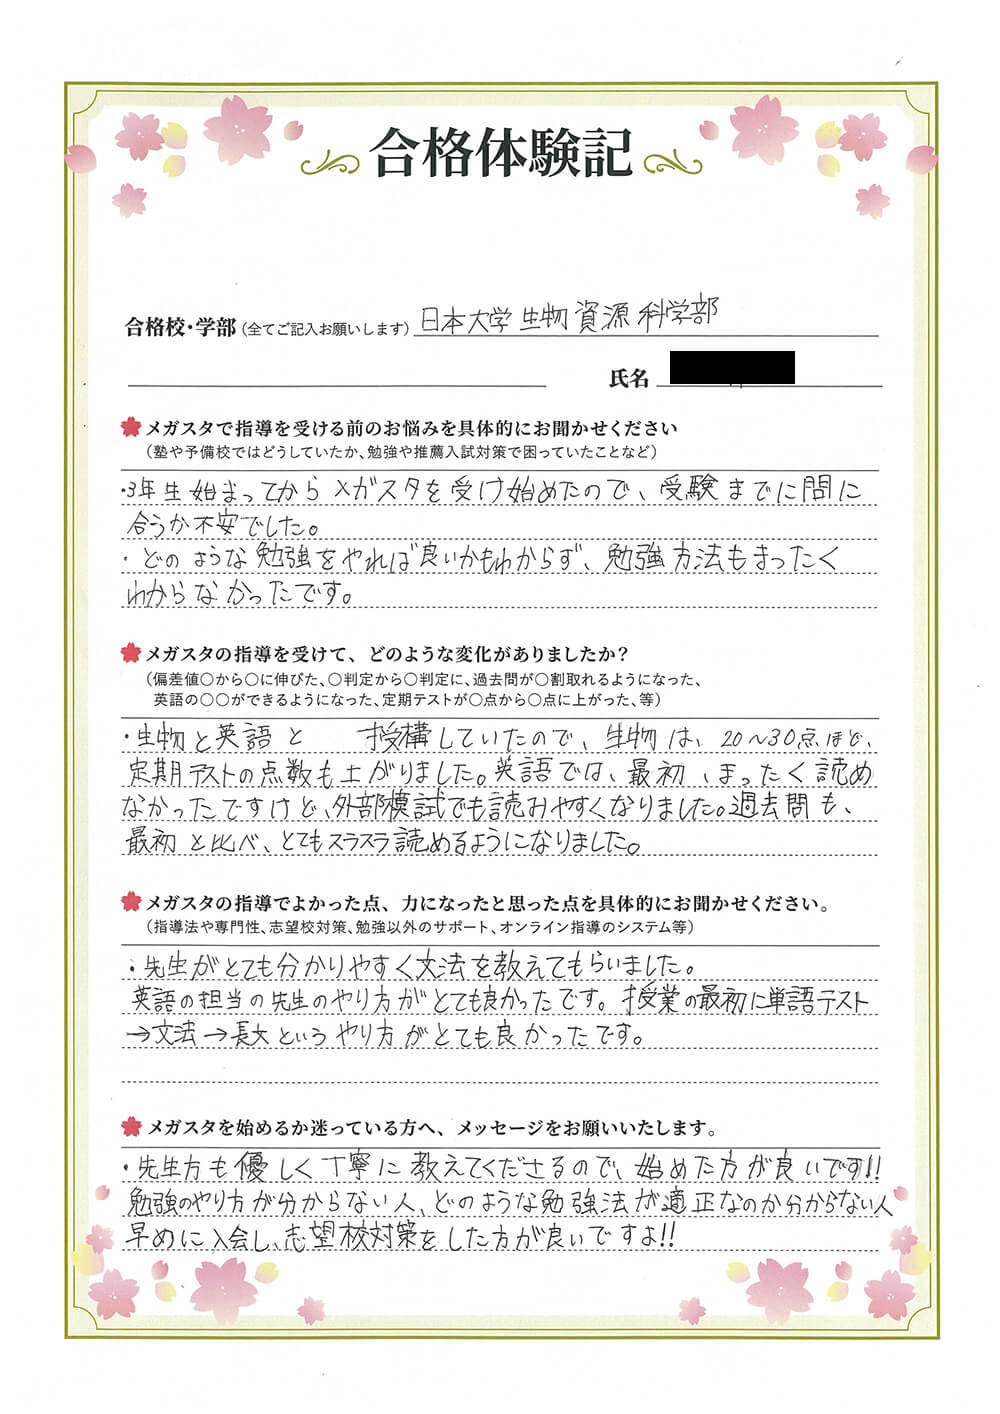 合格体験記
合格校・学部(全てご記入お願いします) 日本大学 生物資源科学部
氏名
メガスタで指導を受ける前のお悩みを具体的にお聞かせください
(塾や予備校ではどうしていたか、勉強や推薦入試対策で困っていたことなど)
・3年生始まってからメガスタを受け始めたので、受験までに間に
合うか不安でした。
・どのような勉強をやれば良いかもわからず、勉強方法もまったく
わからなかったです。
メガスタの指導を受けて、どのような変化がありましたか?
(偏差値○から○に伸びた、○判定から○判定に、過去問が○割取れるようになった、
英語の○○ができるようになった、定期テストが○点から○点に上がった、等)
・生物と英語と 授構していたので、生物は、20〜30点ほど、
定期テストの点数も上がりました。英語では、最初、まったく読め
なかったですけど、外部模試でも読みやすくなりました。過去問も、
最初と比べ、とてもスラスラ読めるようになりました。
メガスタの指導でよかった点、力になったと思った点を具体的にお聞かせください。
(指導法や専門性、志望校対策、勉強以外のサポート、オンライン指導のシステム等)
・先生がとても分かりやすく文法を教えてもらいました。
英語の担当の先生のやり方がとても良かったです。授業の最初に単語テスト
→文法→長文というやり方がとても良かったです。
メガスタを始めるか迷っている方へ、メッセージをお願いいたします。
・先生方も優しく丁寧に教えてくださるので、始めた方が良いです!!
勉強のやり方が分からない人、どのような勉強法が適正なのか分からない人
早めに入会し、志望校対策をした方が良いですよ!!